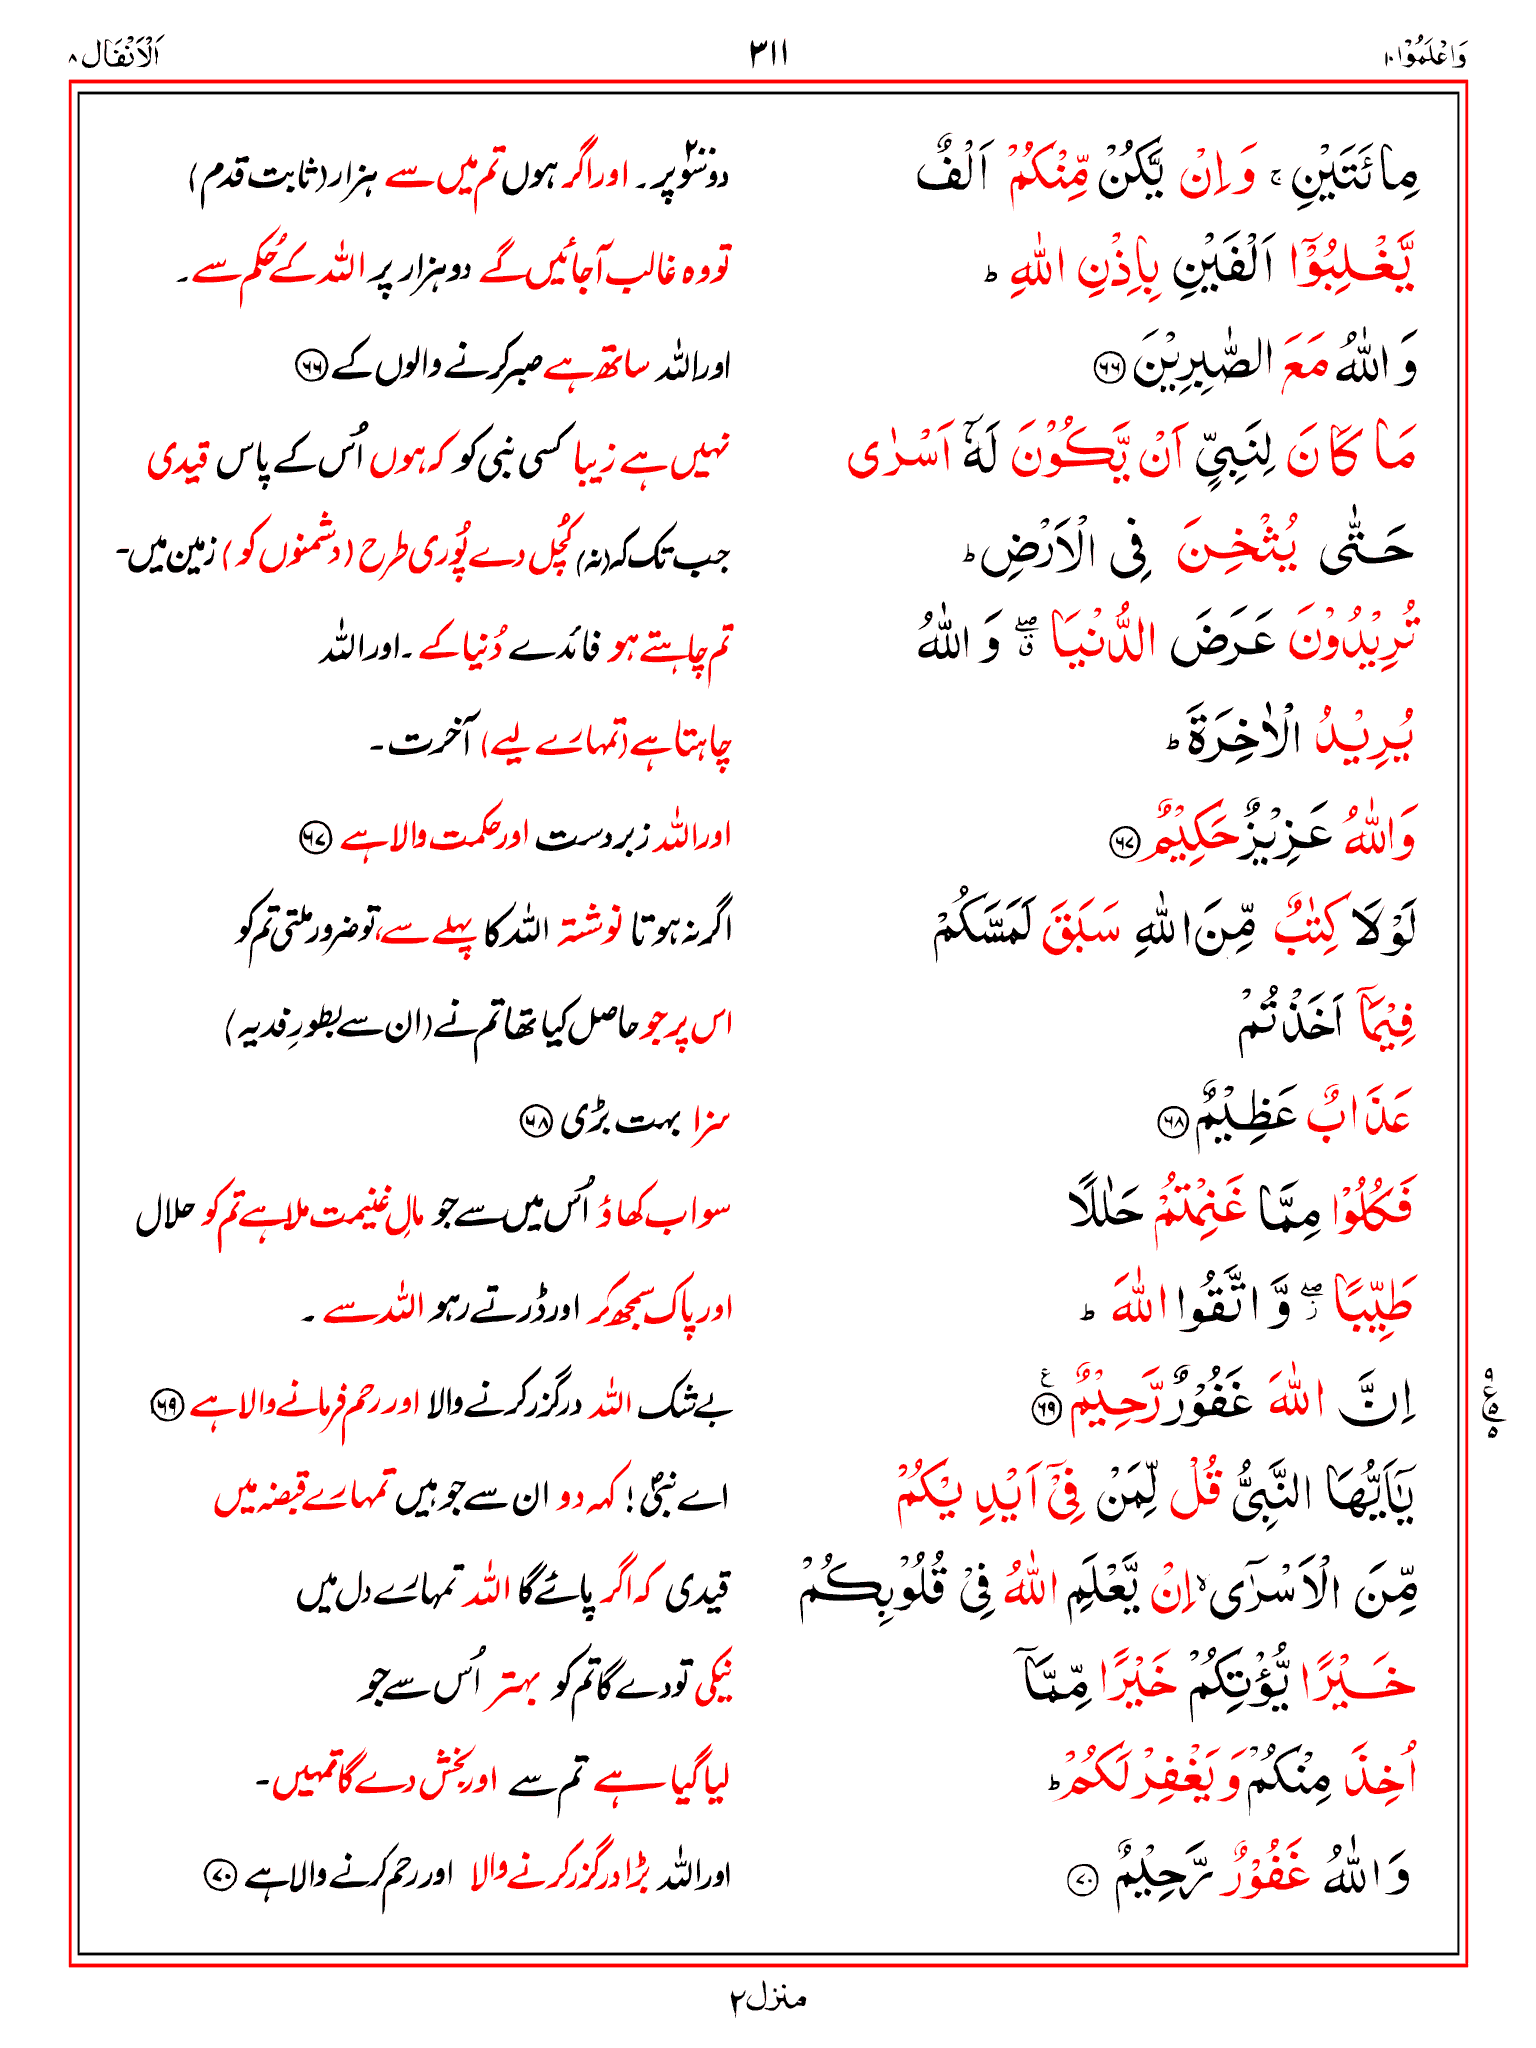 وَاعْلَمُوْا ١٠
٣١١
اَلْاَنْفَال ٨
مِائَتَيْنِ ۚ وَاِنْ يَّكُنْ مِّنْكُمْ اَلْفٌ
دو سو ۲۰۰ پر۔ اور اگر ہوں تم میں سے ہزار (ثابت قدم)
يَّغْلِبُوْٓا اَلْفَيْنِ بِاِذْنِ اللّٰهِ ؕ
تو وہ غالب آجائیں گے دو ہزار پر اللہ کے حُکم سے۔
وَ اللّٰهُ مَعَ الصّٰبِرِيْنَ ﴿۶۶﴾
اور اللہ ساتھ ہے صبر کرنے والوں کے ﴿۶۶﴾
مَا كَانَ لِنَبِيٍّ اَنْ يَّكُوْنَ لَهٗٓ اَسْرٰى
نہیں ہے زیبا کسی نبی کو کہ ہوں اُس کے پاس قیدی
حَتّٰى يُثْخِنَ فِى الْاَرْضِ ؕ
جب تک کہ (نہ) کُچل دے پُوری طرح (دشمنوں کو) زمین میں۔
تُرِيْدُوْنَ عَرَضَ الدُّنْيَا ۖۗ وَ اللّٰهُ
تم چاہتے ہو فائدے دُنیا کے۔ اور اللہ
يُرِيْدُ الْاٰخِرَةَ ؕ
چاہتا ہے (تمہارے لیے) آخرت۔
وَاللّٰهُ عَزِيْزٌ حَكِيْمٌ ﴿۶۷﴾
اور اللہ زبردست اور حکمت والا ہے ﴿۶۷﴾
لَوْلَا كِتٰبٌ مِّنَ اللّٰهِ سَبَقَ لَمَسَّكُمْ
اگر نہ ہوتا نوشتہ اللہ کا پہلے سے، تو ضرور ملتی تم کو
فِيْمَآ اَخَذْتُمْ
اس پر جو حاصل کیا تھا تم نے (ان سے بطورِ فدیہ)
عَذَابٌ عَظِيْمٌ ﴿۶۸﴾
سزا بہت بڑی ﴿۶۸﴾
فَكُلُوْا مِمَّا غَنِمْتُمْ حَلٰلًا
سو اب کھاؤ اُس میں سے جو مالِ غنیمت ملا ہے تم کو حلال
طَيِّبًا ۖز وَّ اتَّقُوا اللّٰهَ ؕ
اور پاک سمجھ کر اور ڈرتے رہو اللہ سے۔
اِنَّ اللّٰهَ غَفُوْرٌ رَّحِيْمٌ ﴿۶۹﴾ ع
بے شک اللہ درگزر کرنے والا اور رحم فرمانے والا ہے ﴿۶۹﴾
۹ ع ۵ ۵
يٰٓاَيُّهَا النَّبِىُّ قُلْ لِّمَنْ فِىْٓ اَيْدِيْكُمْ
اے نبیؐ! کہہ دو ان سے جو ہیں تمہارے قبضہ میں
مِّنَ الْاَسْرٰٓى ۙ اِنْ يَّعْلَمِ اللّٰهُ فِىْ قُلُوْبِكُمْ
قیدی کہ اگر پائے گا اللہ تمہارے دل میں
خَيْرًا يُّؤْتِكُمْ خَيْرًا مِّمَّآ
نیکی تو دے گا تم کو بہتر اُس سے جو
اُخِذَ مِنْكُمْ وَيَغْفِرْ لَكُمْ ؕ
لیا گیا ہے تم سے اور بخش دے گا تمہیں۔
وَ اللّٰهُ غَفُوْرٌ رَّحِيْمٌ ﴿۷۰﴾
اور اللہ بڑا درگزر کرنے والا اور رحم کرنے والا ہے ﴿۷۰﴾
منزل ٢